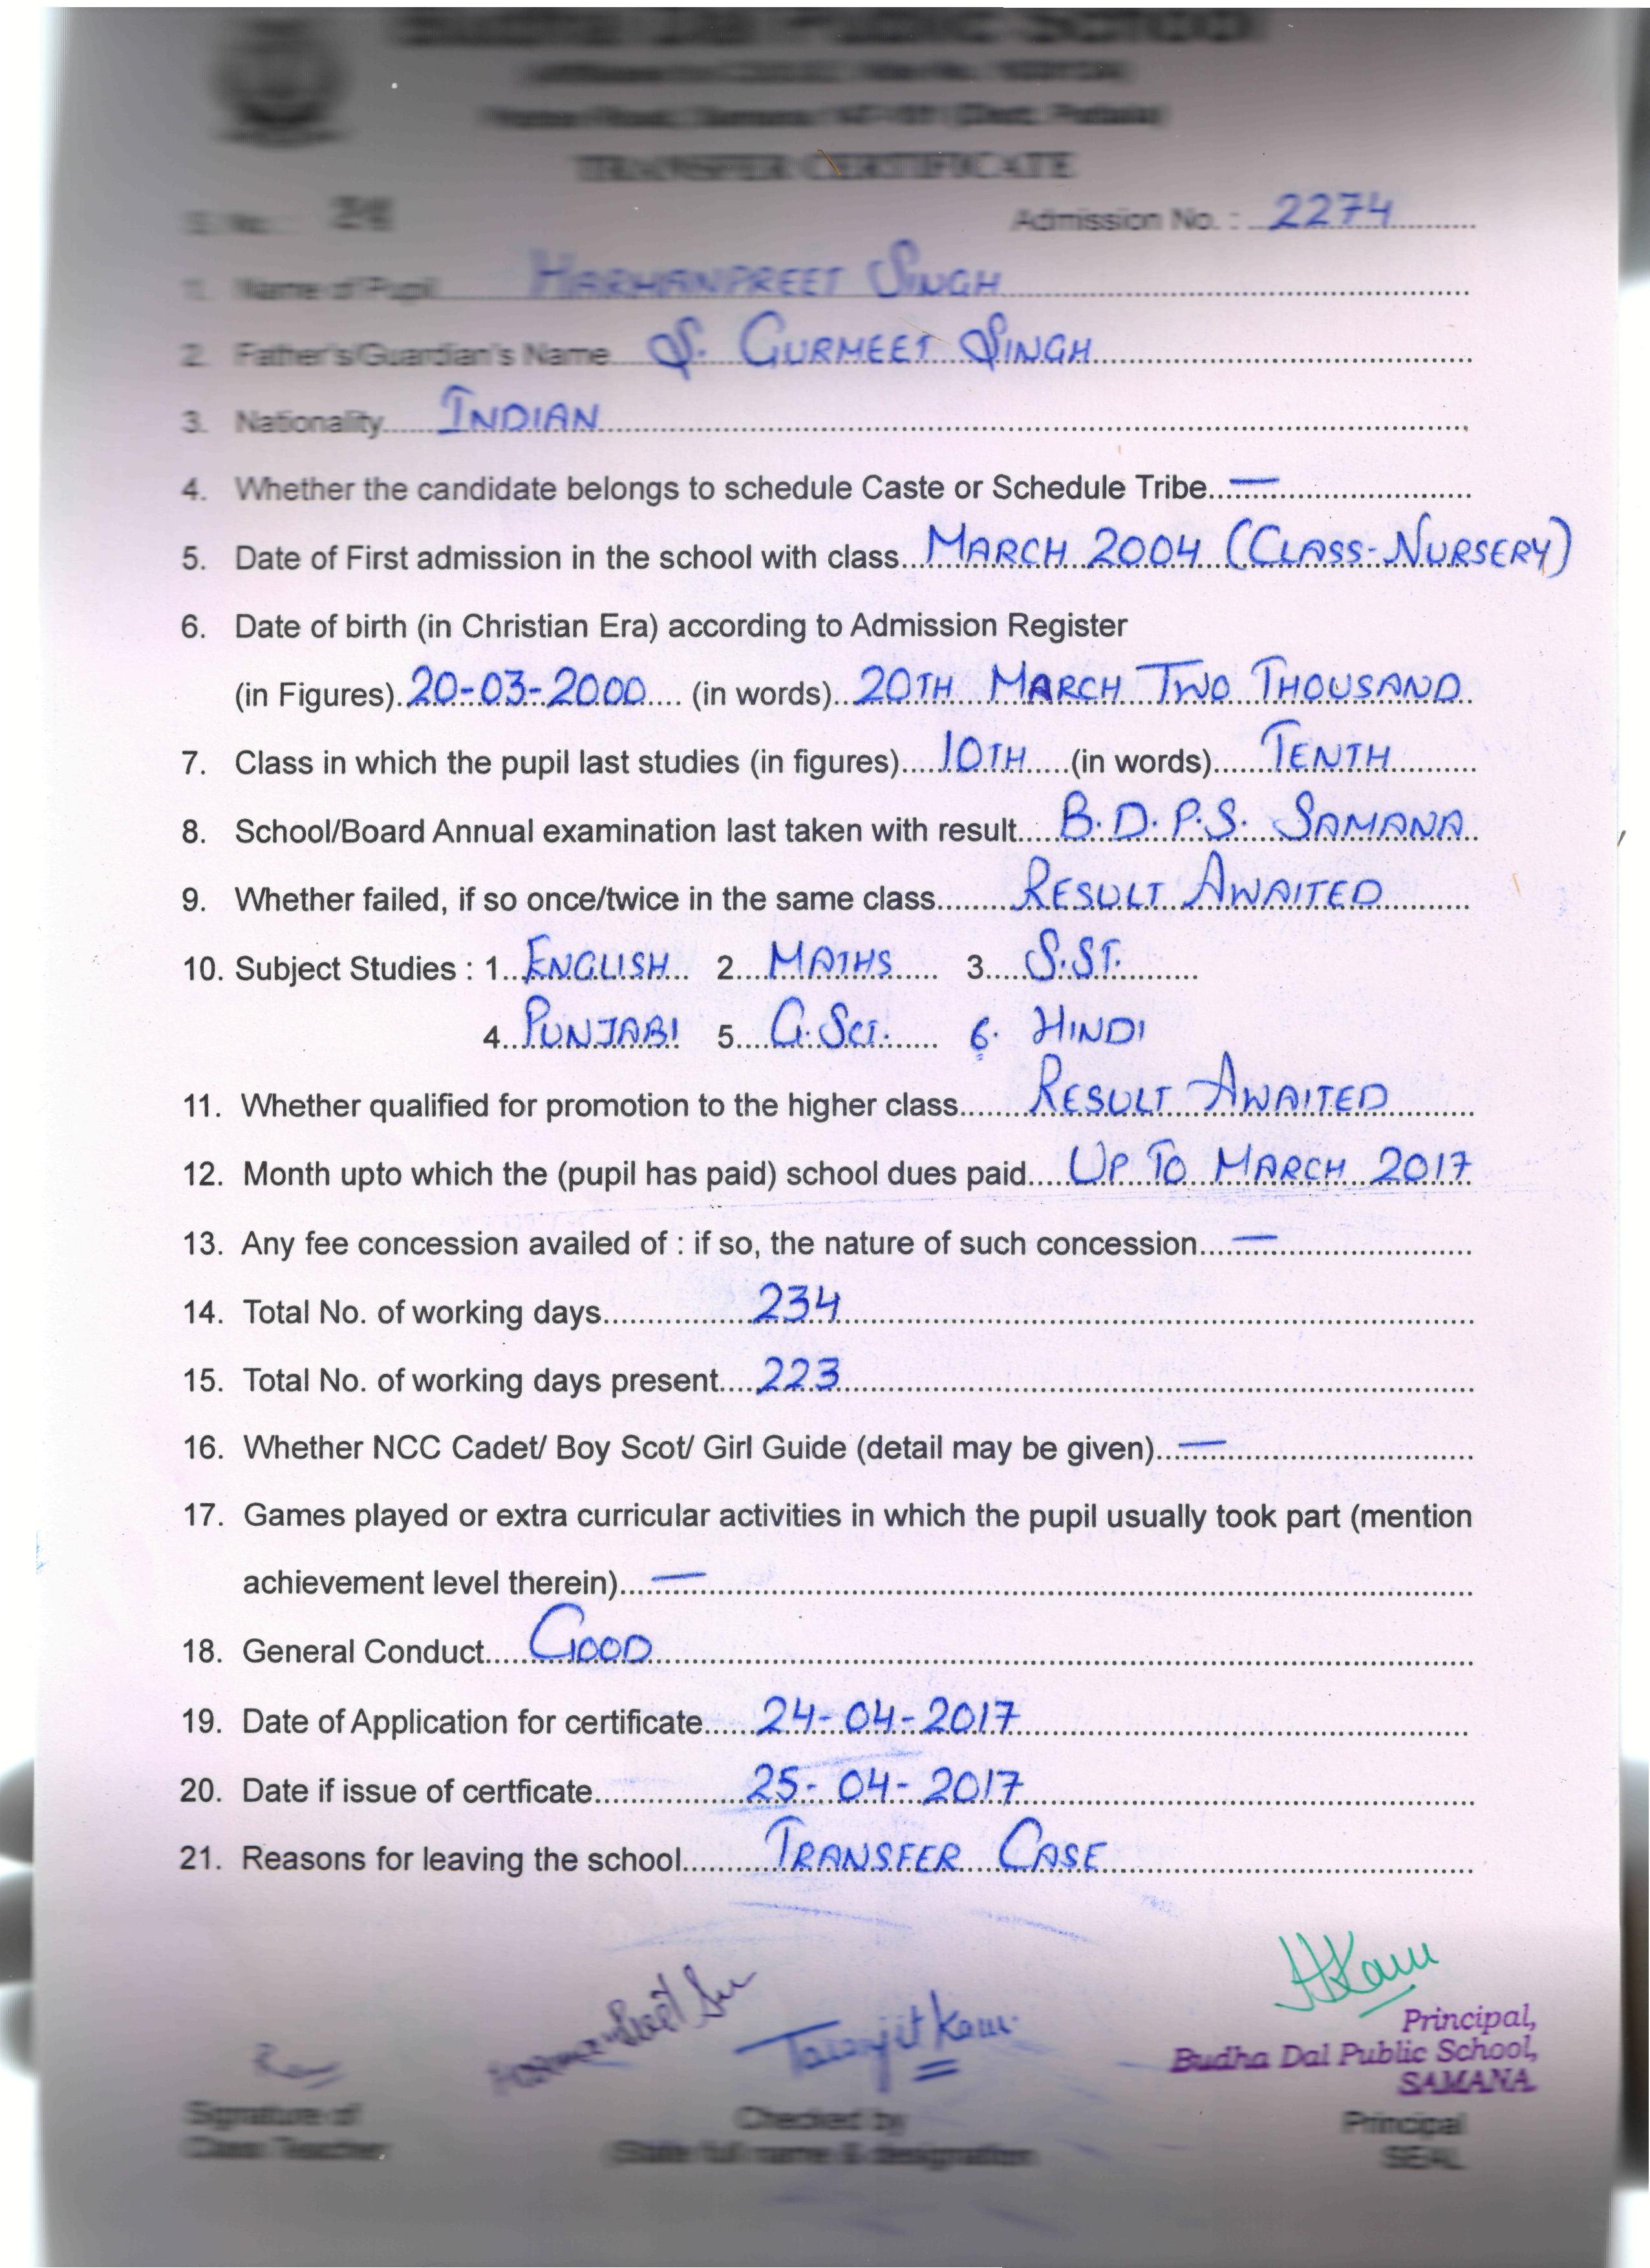 Budha Dal Public School
TRANSFER CERTIFICATE
S. No. : Admission No. : 2274
1. Name of Pupil HARMANPREET SINGH
2. Father's/Guardian's Name S. GURMEET SINGH
3. Nationality INDIAN
4. Whether the candidate belongs to schedule Caste or Schedule Tribe —
5. Date of First admission in the school with class MARCH 2004 (CLASS-NURSERY)
6. Date of birth (in Christian Era) according to Admission Register
(in Figures) 20-03-2000 (in words) 20TH MARCH TWO THOUSAND
7. Class in which the pupil last studies (in figures) 10TH (in words) TENTH
8. School/Board Annual examination last taken with result B.D.P.S. SAMANA
9. Whether failed, if so once/twice in the same class RESULT AWAITED
10. Subject Studies : 1. ENGLISH 2. MATHS 3. S.ST.
4. PUNJABI 5. G.SCI. 6. HINDI
11. Whether qualified for promotion to the higher class RESULT AWAITED
12. Month upto which the (pupil has paid) school dues paid UP TO MARCH 2017
13. Any fee concession availed of : if so, the nature of such concession —
14. Total No. of working days 234
15. Total No. of working days present 223
16. Whether NCC Cadet/ Boy Scot/ Girl Guide (detail may be given) —
17. Games played or extra curricular activities in which the pupil usually took part (mention
achievement level therein) —
18. General Conduct GOOD
19. Date of Application for certificate 24-04-2017
20. Date if issue of certficate 25-04-2017
21. Reasons for leaving the school TRANSFER CASE
Taranjit Kaur
Principal,
Budha Dal Public School,
SAMANA
Signature of Checked by Principal
Class Teacher (State full name & designation SEAL